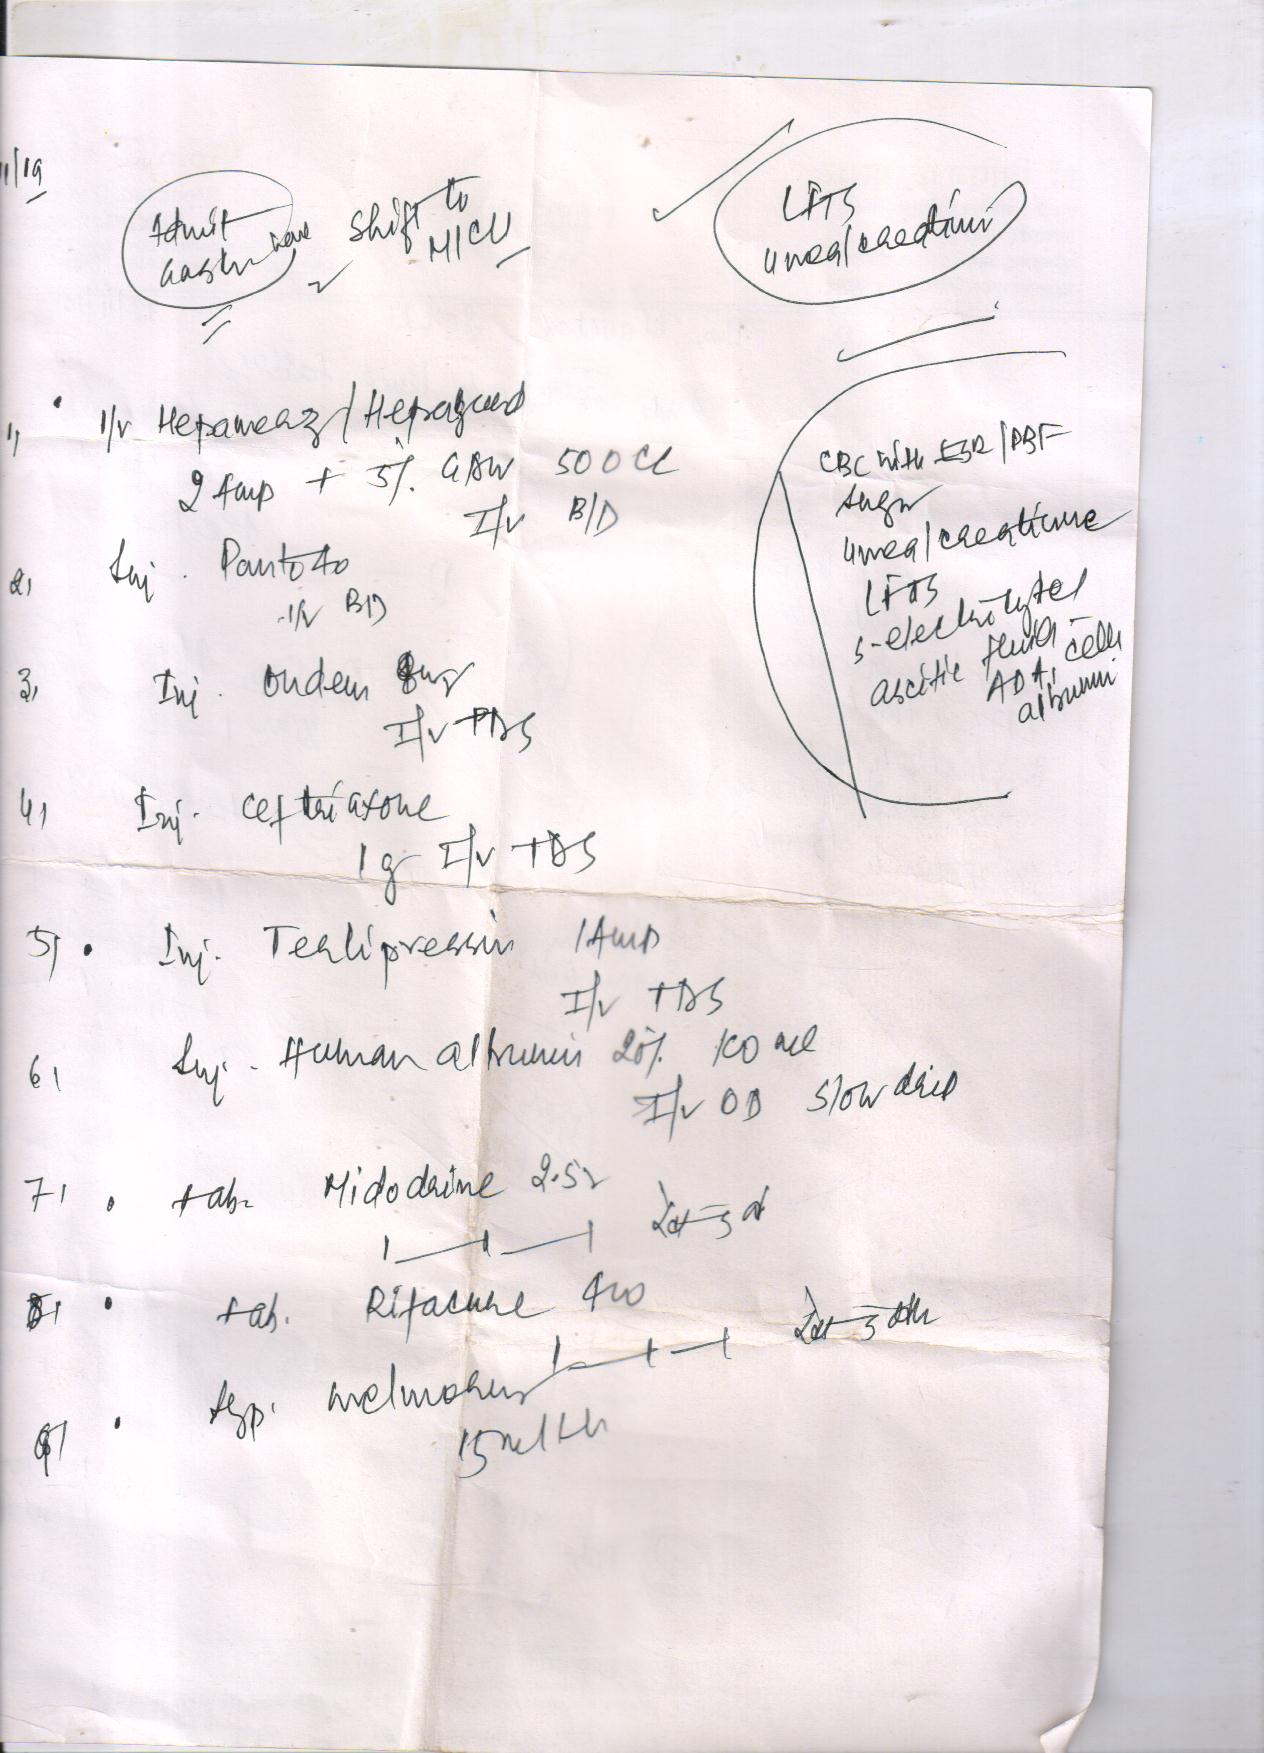 11/19
Admit
Gastro
shift to
MICU
LFTS
urea/creatinine
1, I/v Hepamerz/Hepaguard
2 Amp + 5%. GDW 500cc
I/v B/D
2, Inj. Panto 40
I/v BD
3, Inj. Ondem 8mg
I/v TDS
4, Inj. ceftriaxone
1g I/v TDS
5, Inj. Terlipressin 1Amp
I/v TDS
6, Inj. Human albumin 20% 100 ml
I/v OD slow drip
7, tab. Midodrine 2.5
8, tab. Rifacure 400
9, syp.
15ml
CBC with ESR/PBF
sugar
urea/creatinine
LFTS
s-electrolytes
ascitic fluid - cells
ADA,
albumin